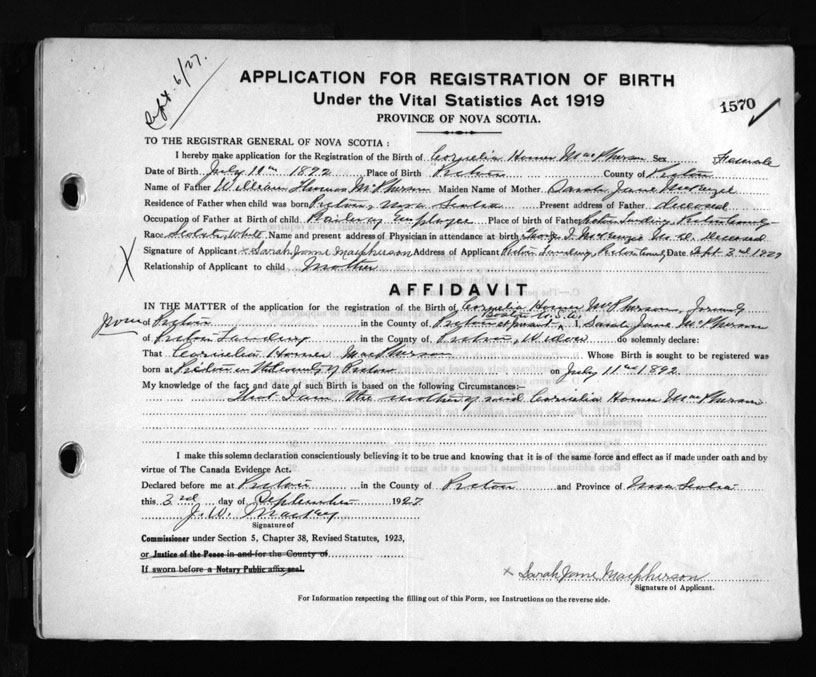 Sept. 6/27.
APPLICATION FOR REGISTRATION OF BIRTH
Under the Vital Statistics Act 1919
1570
PROVINCE OF NOVA SCOTIA.
TO THE REGISTRAR GENERAL OF NOVA SCOTIA :
I hereby make application for the Registration of the Birth of Cornelia Homer MacPherson Sex Female
Date of Birth July 11th 1892 Place of Birth Pictou County of Pictou
Name of Father William McPherson Maiden Name of Mother Sarah Jane McKenzie
Residence of Father when child was born Pictou, Nova Scotia Present address of Father deceased
Occupation of Father at Birth of child Railway Employee Place of birth of Father Pictou Landing, Pictou County
Race Scotch, White Name and present address of Physician in attendance at birth George I. McKenzie M.D. Deceased
Signature of Applicant x Sarah Jane Macpherson Address of Applicant Pictou Landing, Pictou County, Date Sept 3rd 1927
X Relationship of Applicant to child Mother
AFFIDAVIT
IN THE MATTER of the application for the registration of the Birth of Cornelia Homer McPherson, formerly
of Pictou in the County of Pictou at present Boston U.S.A., I, Sarah Jane McPherson
of Pictou Landing in the County of Pictou, Widow do solemnly declare:
That Cornelia Homer MacPherson Whose Birth is sought to be registered was
born at Pictou in the County of Pictou on July 11th 1892
My knowledge of the fact and date of such Birth is based on the following Circumstances:—
That I am the mother of said Cornelia Homer MacPherson
I make this solemn declaration conscientiously believing it to be true and knowing that it is of the same force and effect as if made under oath and by
virtue of The Canada Evidence Act.
Declared before me at Pictou in the County of Pictou and Province of Nova Scotia
this 3rd day of September 1927
J. W. Mackay
Signature of
Commissioner under Section 5, Chapter 38, Revised Statutes, 1923,
or Justice of the Peace in and for the County of
If sworn before a Notary Public affix seal.
x Sarah Jane Macpherson
Signature of Applicant.
For Information respecting the filling out of this Form, see Instructions on the reverse side.